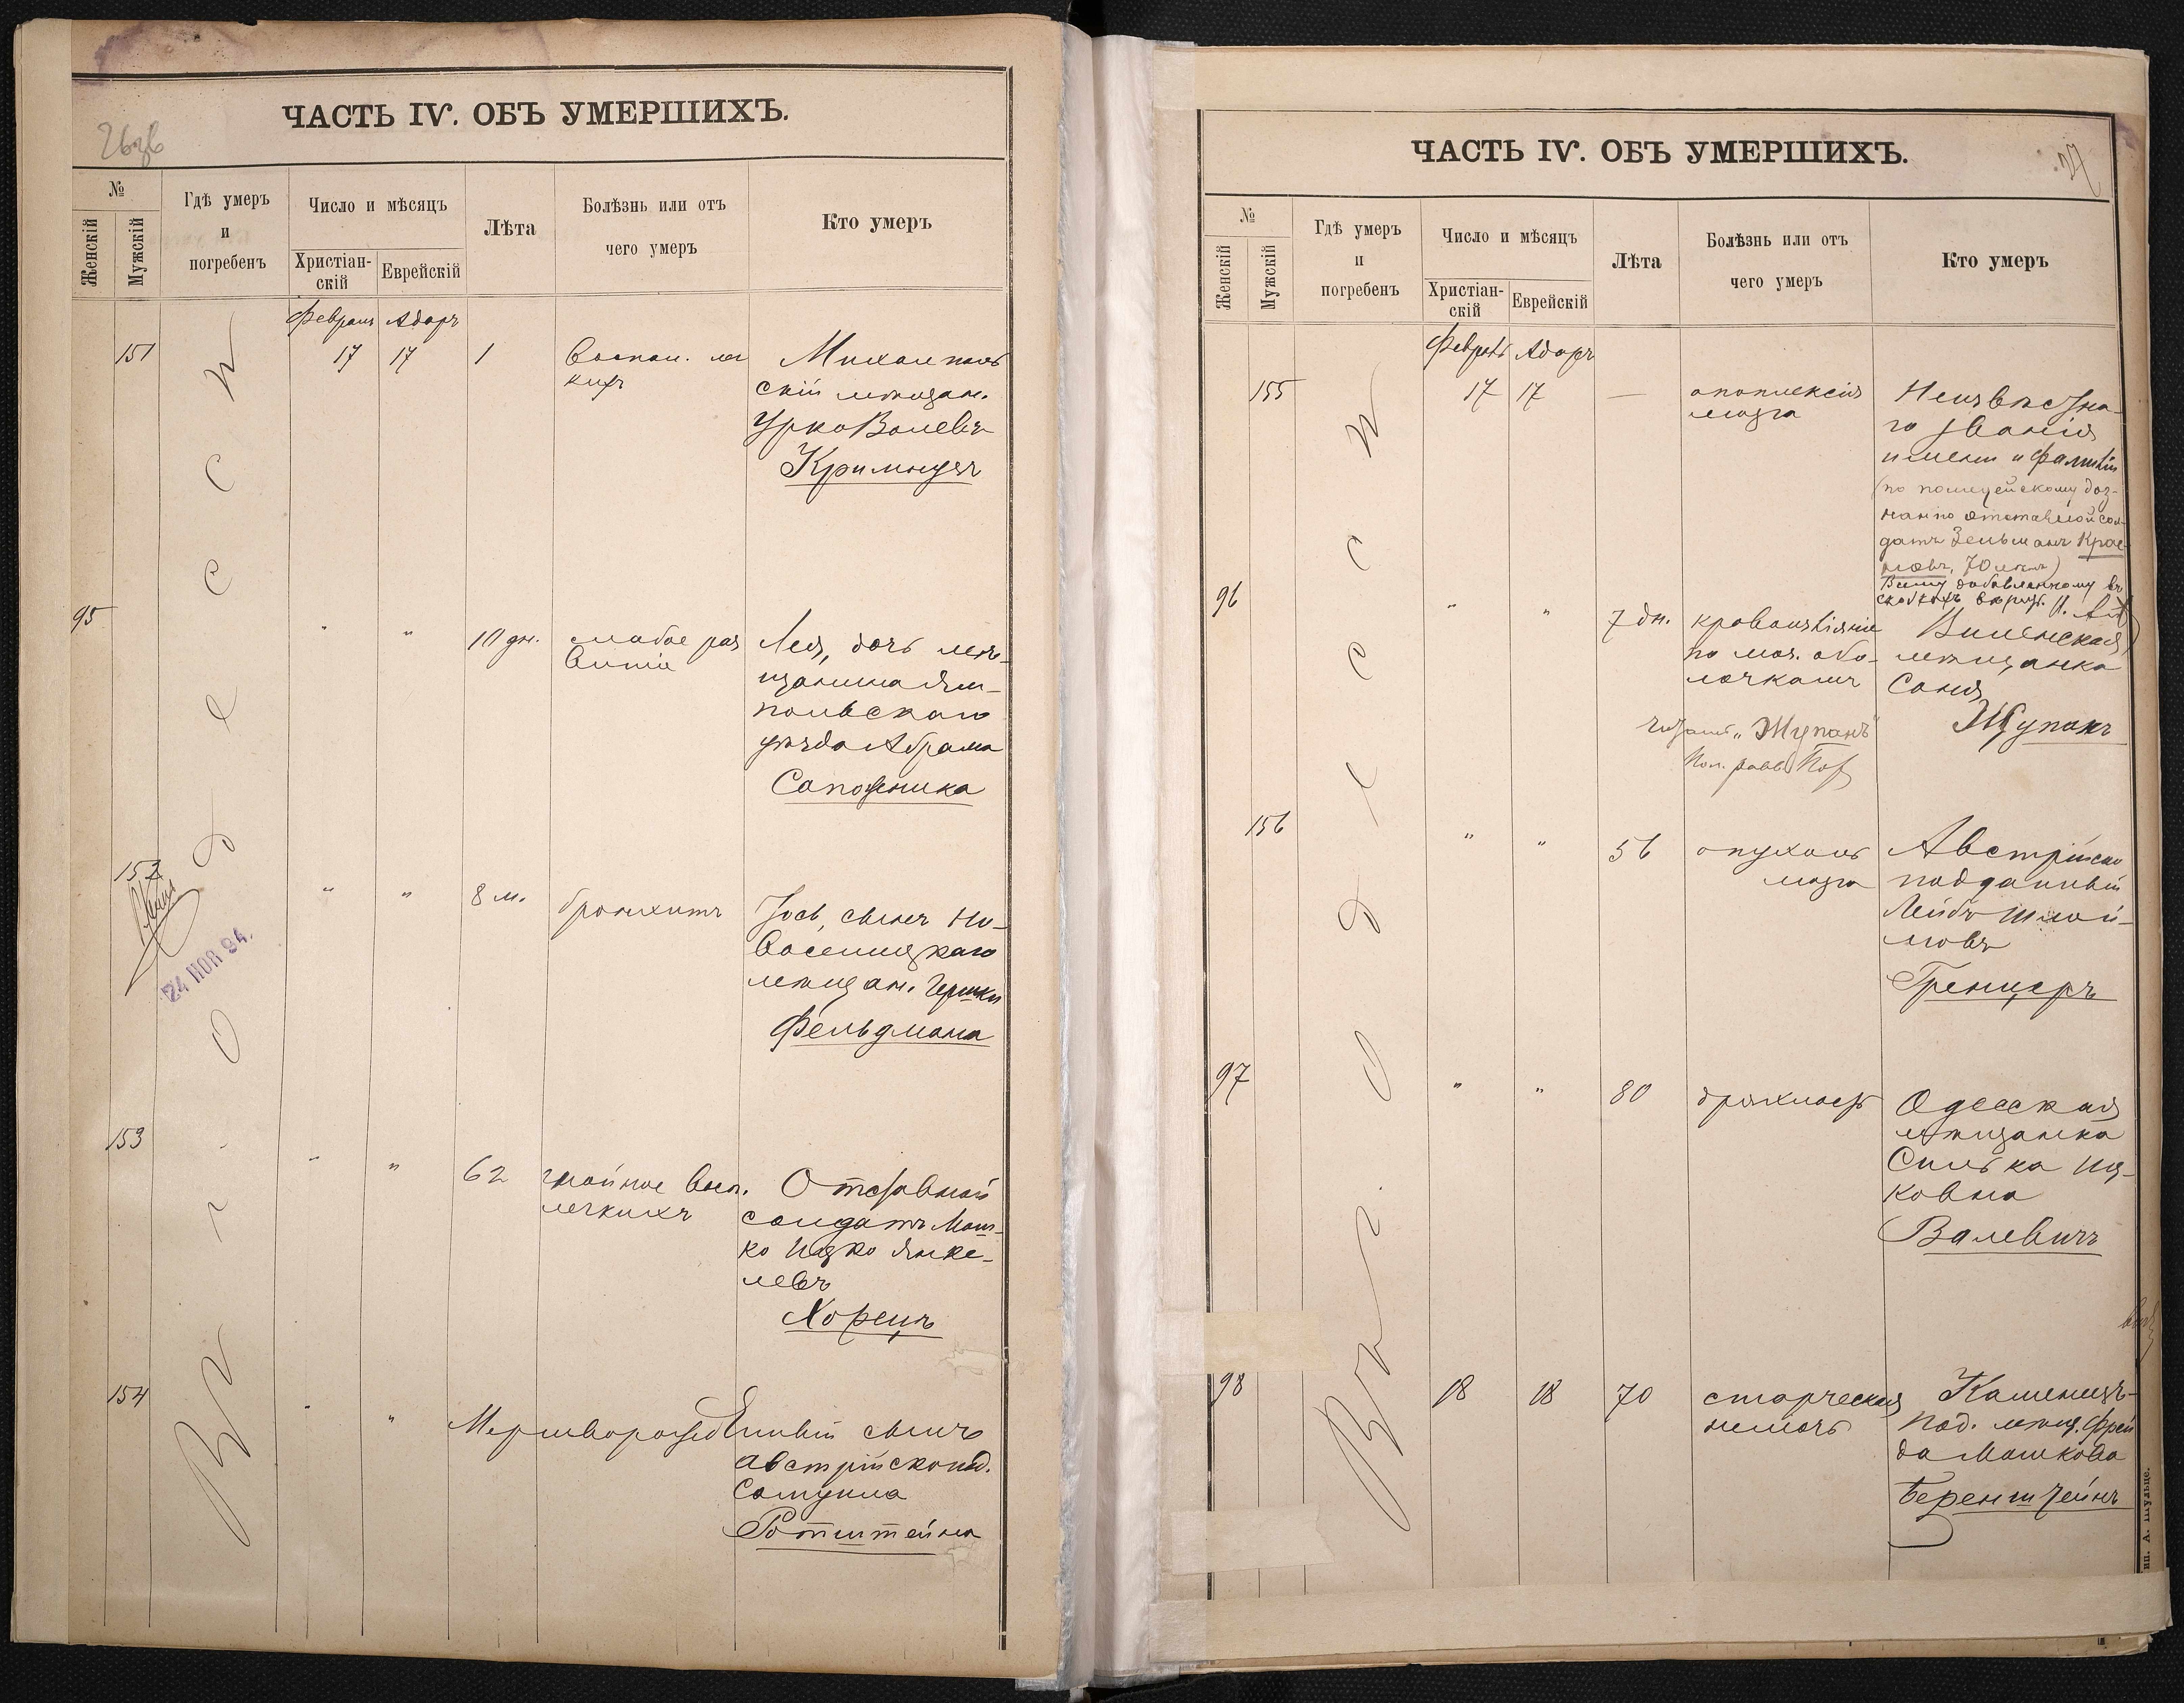 ЧАСТЬ IV. ОБЪ УМЕРШИХЪ.
№
Женскій
Мужскій
Гдѣ умеръ
и
погребенъ
Число и мѣсяцъ
Христіан-
скій
Еврейскій
Лѣта
Болѣзнь или отъ
чего умеръ
Кто умеръ
В г. Одессѣ
Февраль Адаръ
151 17 17 1 Воспал. лег
кихъ
Михалполь
скій мѣщан.
Урко Волевъ
Кримнусъ
95 " " 10 дн. слабое раз
витіе
Лея, дочь мѣ-
щанина Ям-
польскаго
уѣзда Абрама
Сапожника
152 " " 8 м. бронхитъ
Іось, сынъ Но-
воселицкаго
мѣщан. Гершки
Фельдмана
24 НОЯ 94.
153 " " 62 гнойное восп.
легкихъ
Отставной
солдатъ Мош-
ко Ицко Янке-
левъ
Хорецъ
154 " " Мертворожденный сынъ
австрійско под.
Самуила
Ротштейна
ЧАСТЬ IV. ОБЪ УМЕРШИХЪ.
27
№
Женскій
Мужскій
Гдѣ умеръ
и
погребенъ
Число и мѣсяцъ
Христіан-
скій
Еврейскій
Лѣта
Болѣзнь или отъ
чего умеръ
Кто умеръ
В г. Одессѣ
Февраль Адаръ
155 17 17 — апоплексія
мозга
Неизвѣстна-
го званія
имени и фамиліи
(по полицейскому доз-
нанію отставной сол-
датъ Зельманъ Крас-
новъ, 70 лѣтъ)
добавленному въ
скобкахъ вѣрить.
96 " " 7 дн. кровоизліяніе
по моз. обо-
лочкамъ
Виленская
мѣщанка
Соня
Жупанъ
"Жупанъ"
156 " " 56 опухоль
мозга
Австрійско
подданный
Лейбъ Шлой-
мовъ
Гренцеръ
97 " " 80 дряхлость
Одесская
мѣщанка
Силька Иц-
ковна
Валевичъ
98 18 18 70 старческая
немочь
Каменецъ-
Под. мѣщ. Фрей
да Мошкова
Беренштейнъ
А. Шульце.